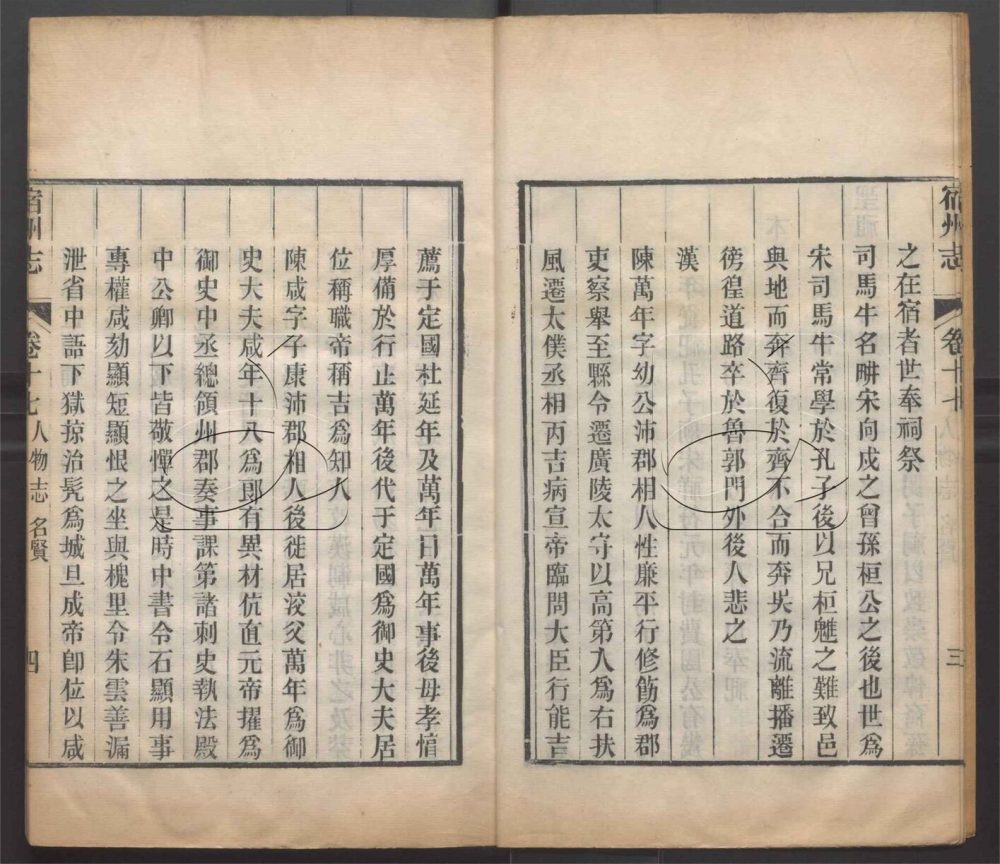 宿州志 卷十七 三
之在宿者世奉祠祭
司馬牛名畊宋向戍之曾孫桓公之後也世爲
宋司馬牛常學於孔子後以兄桓魋之難致邑
與地而奔齊復於齊不合而奔吳乃流離播遷
徬徨道路卒於魯郭門外後人悲之
漢
陳萬年字幼公沛郡相人性廉平行修飭爲郡
吏察舉至縣令遷廣陵太守以高第入爲右扶
風遷太僕丞相丙吉病宣帝臨問大臣行能吉
薦于定國杜延年及萬年曰萬年事後母孝惇
厚備於行止萬年後代于定國爲御史大夫居
位稱職帝稱吉爲知人
陳咸字子康沛郡相人後徙居洨父萬年爲御
史大夫咸年十八爲郎有異材伉直元帝擢爲
御史中丞總領州郡奏事課第諸刺史執法殿
中公卿以下皆敬憚之是時中書令石顯用事
專權咸劾顯短顯恨之坐與槐里令朱雲善漏
泄省中語下獄掠治髡爲城旦成帝卽位以咸
宿州志 卷十七 人物志 名賢 四